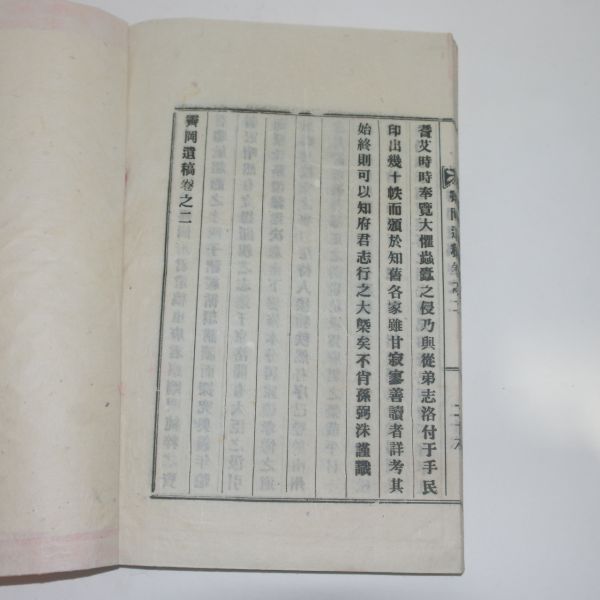 耋艾時時奉覽大懼蟲蠹之侵乃與從弟志洛付于手民
印出幾十帙而頒於知舊各家雖甘寂寥善讀者詳考其
始終則可以知府君志行之大槩矣不肖孫弼洙謹識
霽岡遺稿卷之二